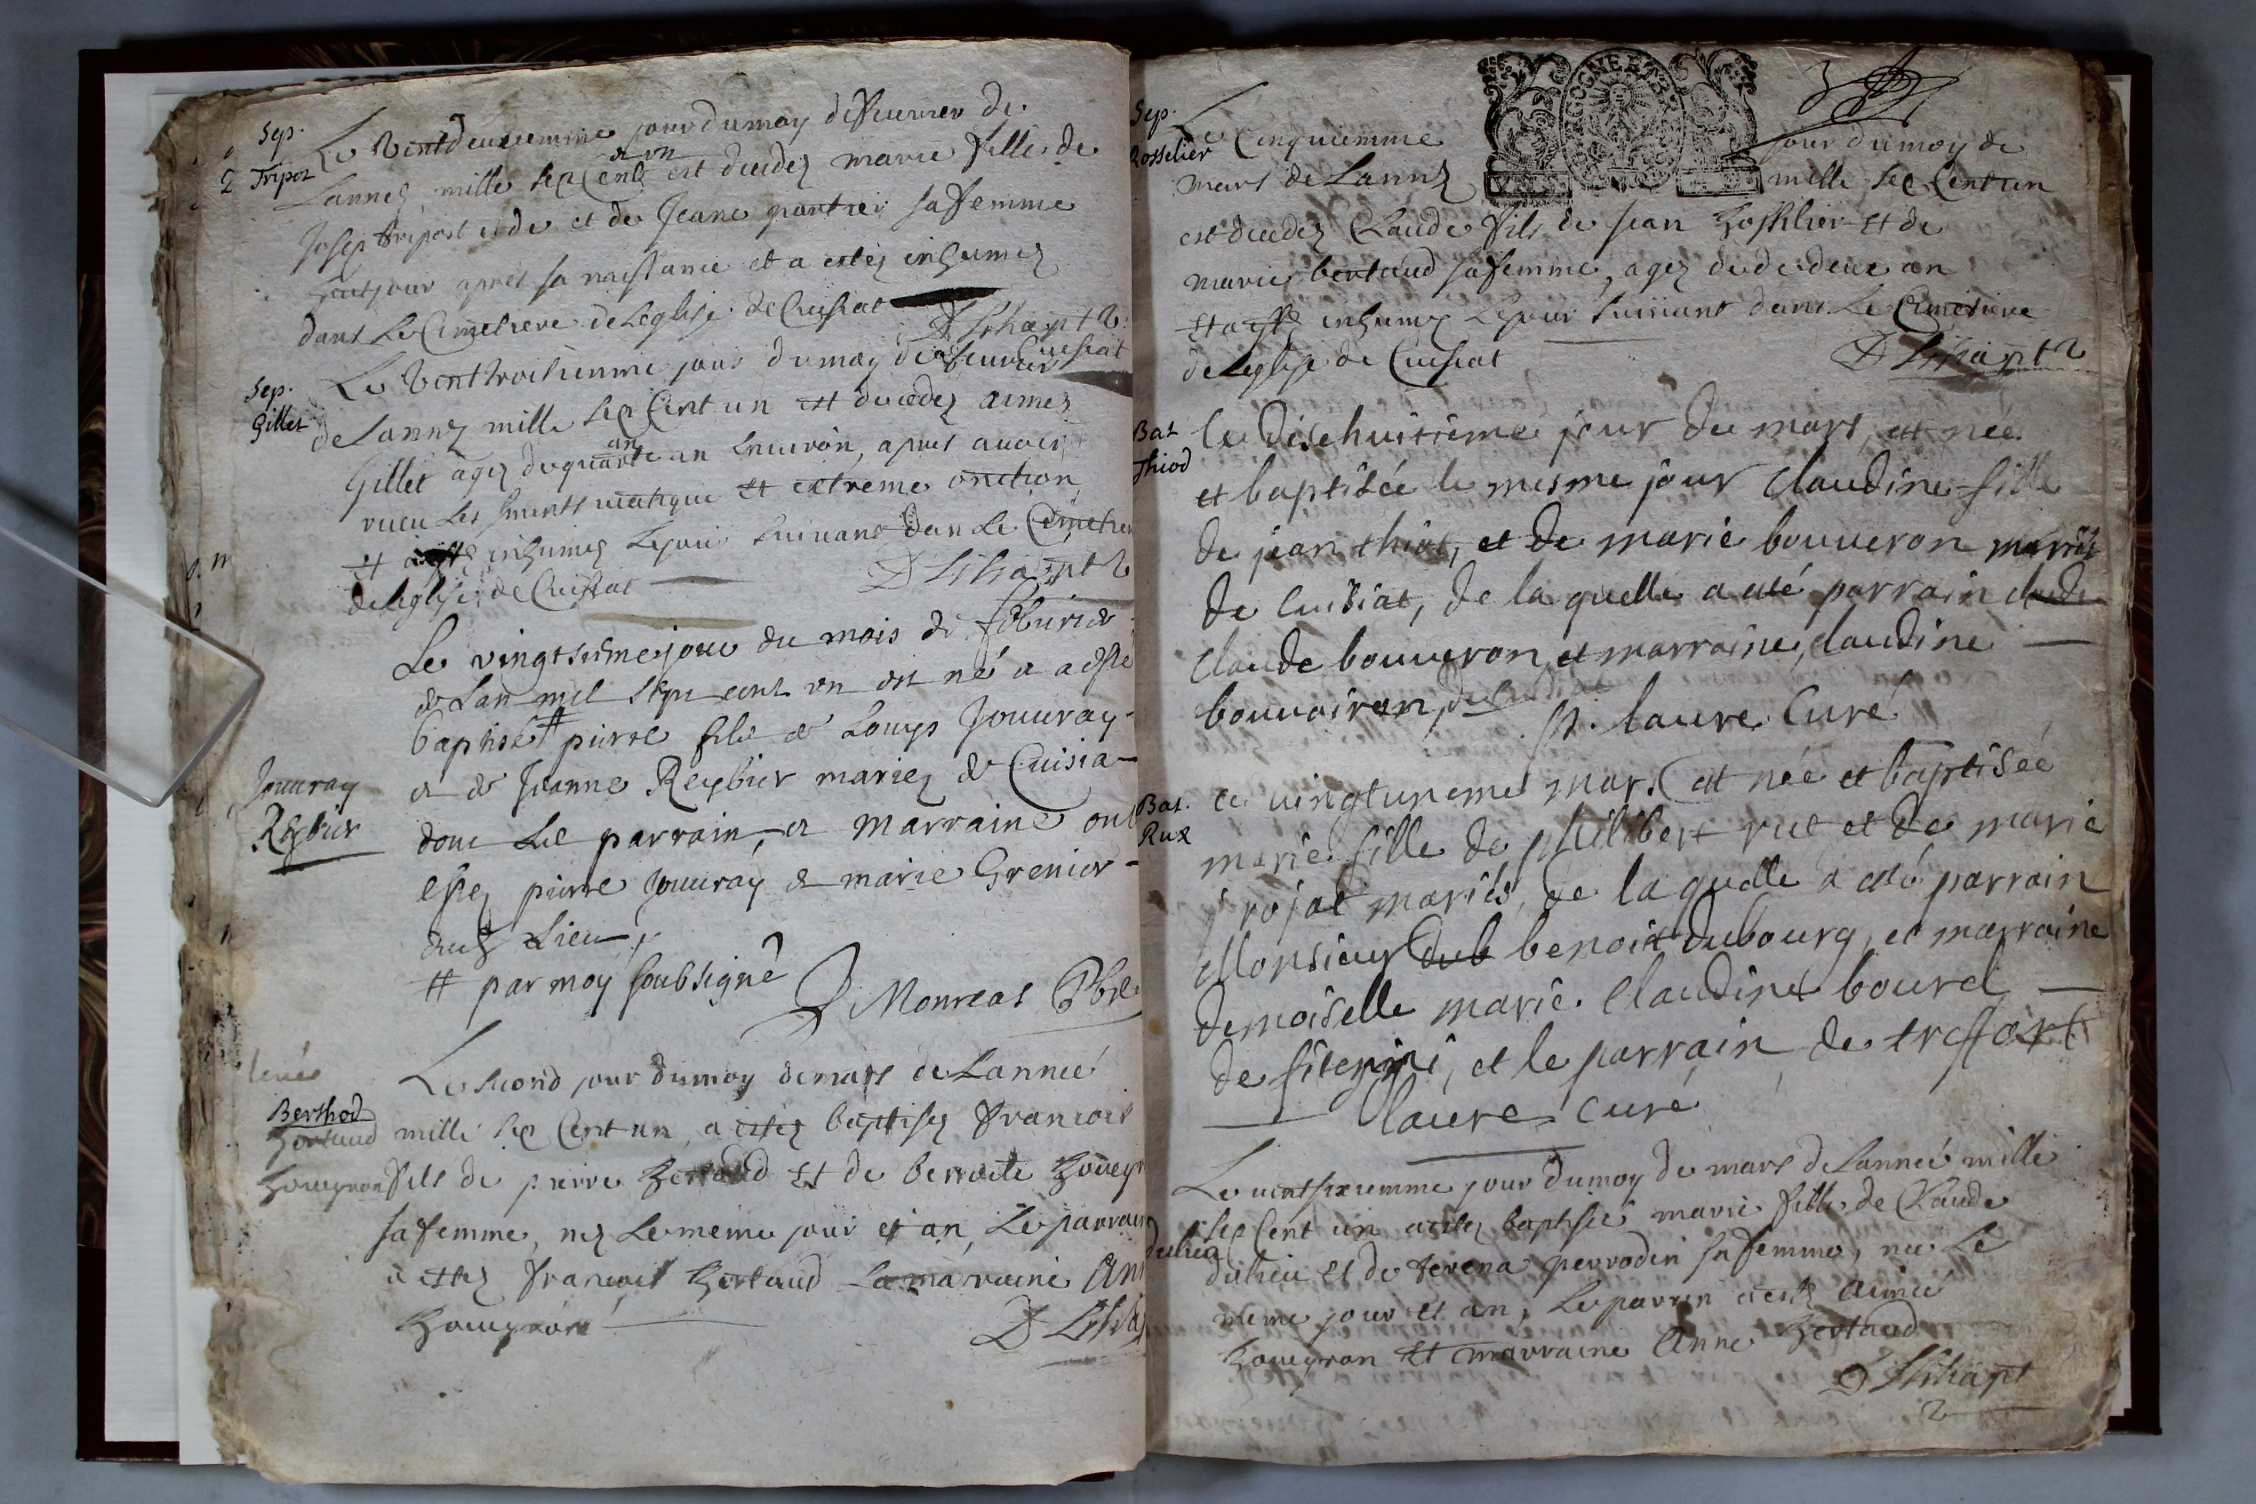 Sep.
Tripoz
Le ventdeuxiemme jour du moy de feuurier de
et un
Lannez mille sep Cents est decedez marie fille de
Josep tripost et de Jeane sa femme
huit jour apres sa naissance et a estez inhumez
dans Le Cimetiere de Leglise de Cuisiat
Sep.
Gillet
Le venttroisiemme jour du moy de feuurier
de Lannez mille sep Cent un est decedez aimez
Gillet agez de quarante an Enuiron, apres auoir
receu Les uiatique et extreme onction
et a estez inhumez Le jour suiuant dan Le Cimetie
de leglise de Cuisiat
Le vingt jour du mois de feburier
de Lan mil sept cent un est né a a esté
baptisé # pierre fils de Louys Jouuray
Jouuray
Reybier
et de Jeanne Reybier mariez de Cuisia
donc Le parrain, et marraine ont
estez pierre Jouuray et marie Grenier
dud Lieu
# par moy soubsigné
Monreas Pbre
Le second jour du moy de mars de Lanneé
Berthod
Bertaud
Boueyron
mille sep Cent un a estez baptisez francois
fils de pierre Bertaud et de benoite Boueyr
sa femme, nez Le meme jour et an, Le parrain
a estez francois Bertaud La maraine Ann
Boueyron
Sep.
Rosselier
Le Cinquiemme jour du moy de
mars de Lannez mille sep Cent un
est decedez Claude fils de Jean Rosselier et de
marie bertaud sa femme, agez de de deux an
et a estez inhumez Le jour suiuant dans Le Cimetiere
de Leglise de Cuisiat
Bat
Thiod
le dixehuitieme jour du mars, est née
et baptisée le mesme jour claudine fille
de jean thiot, et de marie bouueron mariés
de Cuisiat, de la quelle a eté parrain claude
claude bouueron et marraine, claudine
bouuairon, de Cuisiat
laure Curé
Bat.
Rux
ce uingtuneme mars est née et baptisée
marie fille de philibert rut et de marie
rojat mariés, de la quelle a eté parrain
Monsieur dub benoit dubourg, et marraine
demoiselle marie Claudine bourd
de , et le parrain de treffort
laure curé
Le uentsixiemme jour du moy de mars de Lanneé mille
sep Cent un a estez baptisée marie fille de Claude
dulieu
dulieu et de perrodin sa femme, nee Le
meme jour et an, Le parrin a estez aimeé
Boueyron et marraine Anne Bertaud